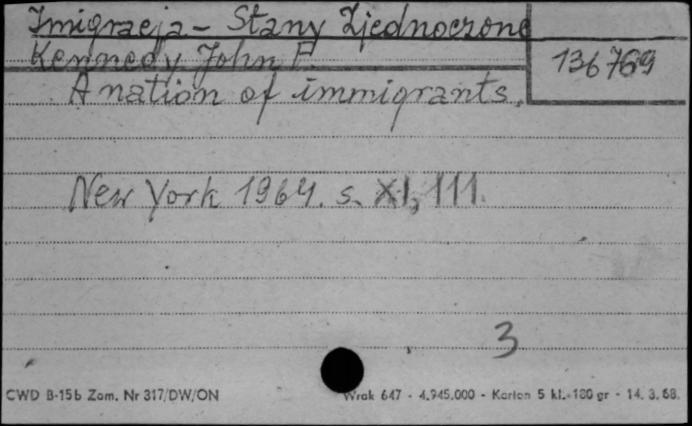 Imigracja - Stany Zjednoczone
Kennedy John F.
136769
A nation of immigrants.
New York 1964. s. XI, 111.
3
CWD B-15b Zam. Nr 317/DW/ON
Wrak 647 - 4.945.000 - Karton 5 kl. 180 gr - 14. 3. 68.